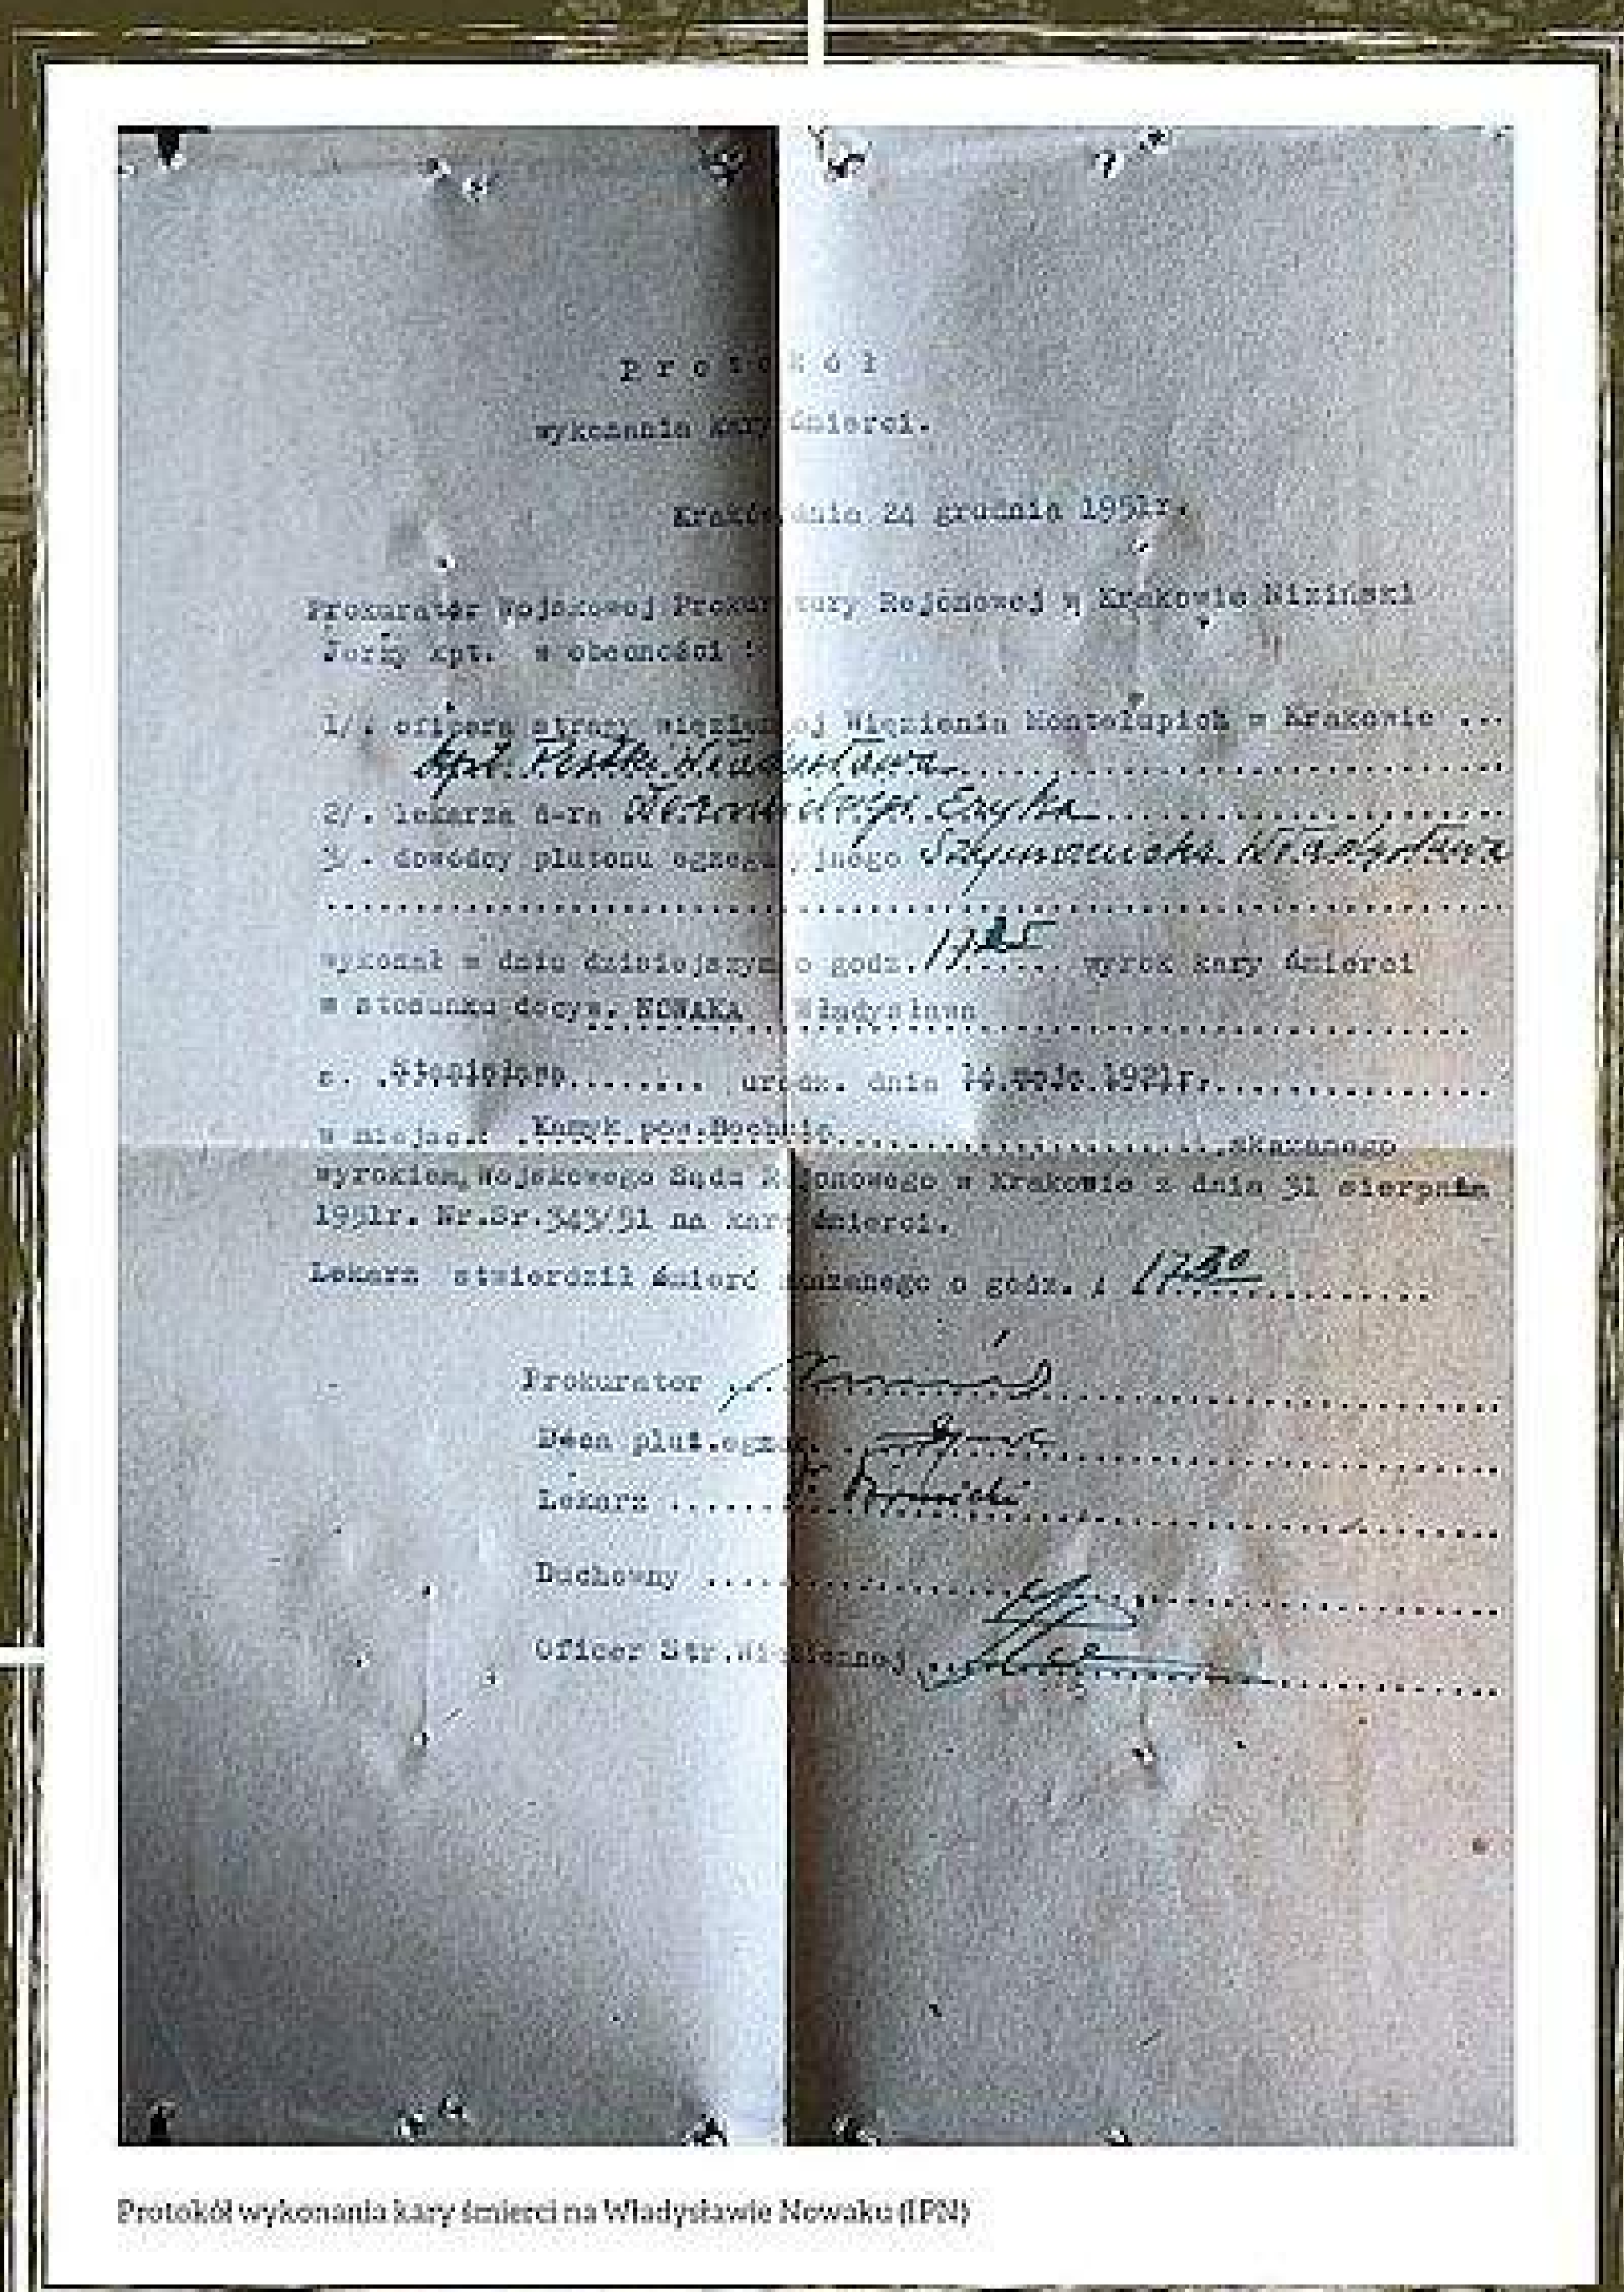 P r o t o k ó ł
wykonania kary śmierci.
Kraków dnia 24 grudnia 1951r.
Prokurator Wojskowej Prokuratury Rejonowej w Krakowie Niziński
Jerzy kpt. w obecności :
1/. oficera straży więziennej Więzienia Montelupich w Krakowie ...
kpt. Władysława
2/. lekarza d-ra Eryka
3/. dowódcy plutonu egzekucyjnego Władysława
wykonał w dniu dzisiejszym o godz. 17 25 wyrok kary śmierci
w stosunku do NOWAKA Władysława
s. Stanisława urodz. dnia 14 maja 1921r.
w miejsc. pow. Bochnia skazanego
wyrokiem, Wojskowego Sądu Rejonowego w Krakowie z dnia 31 sierpnia
1951r. Nr.Sr.343/51 na karę śmierci.
Lekarz stwierdził śmierć skazanego o godz. 17 30
Prokurator
plut.egz.
Lekarz
Duchowny
Oficer Str.Więziennej
Protokół wykonania kary śmierci na Władysławie Nowaku (IPN)